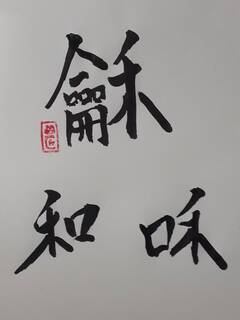 龢
和 咊